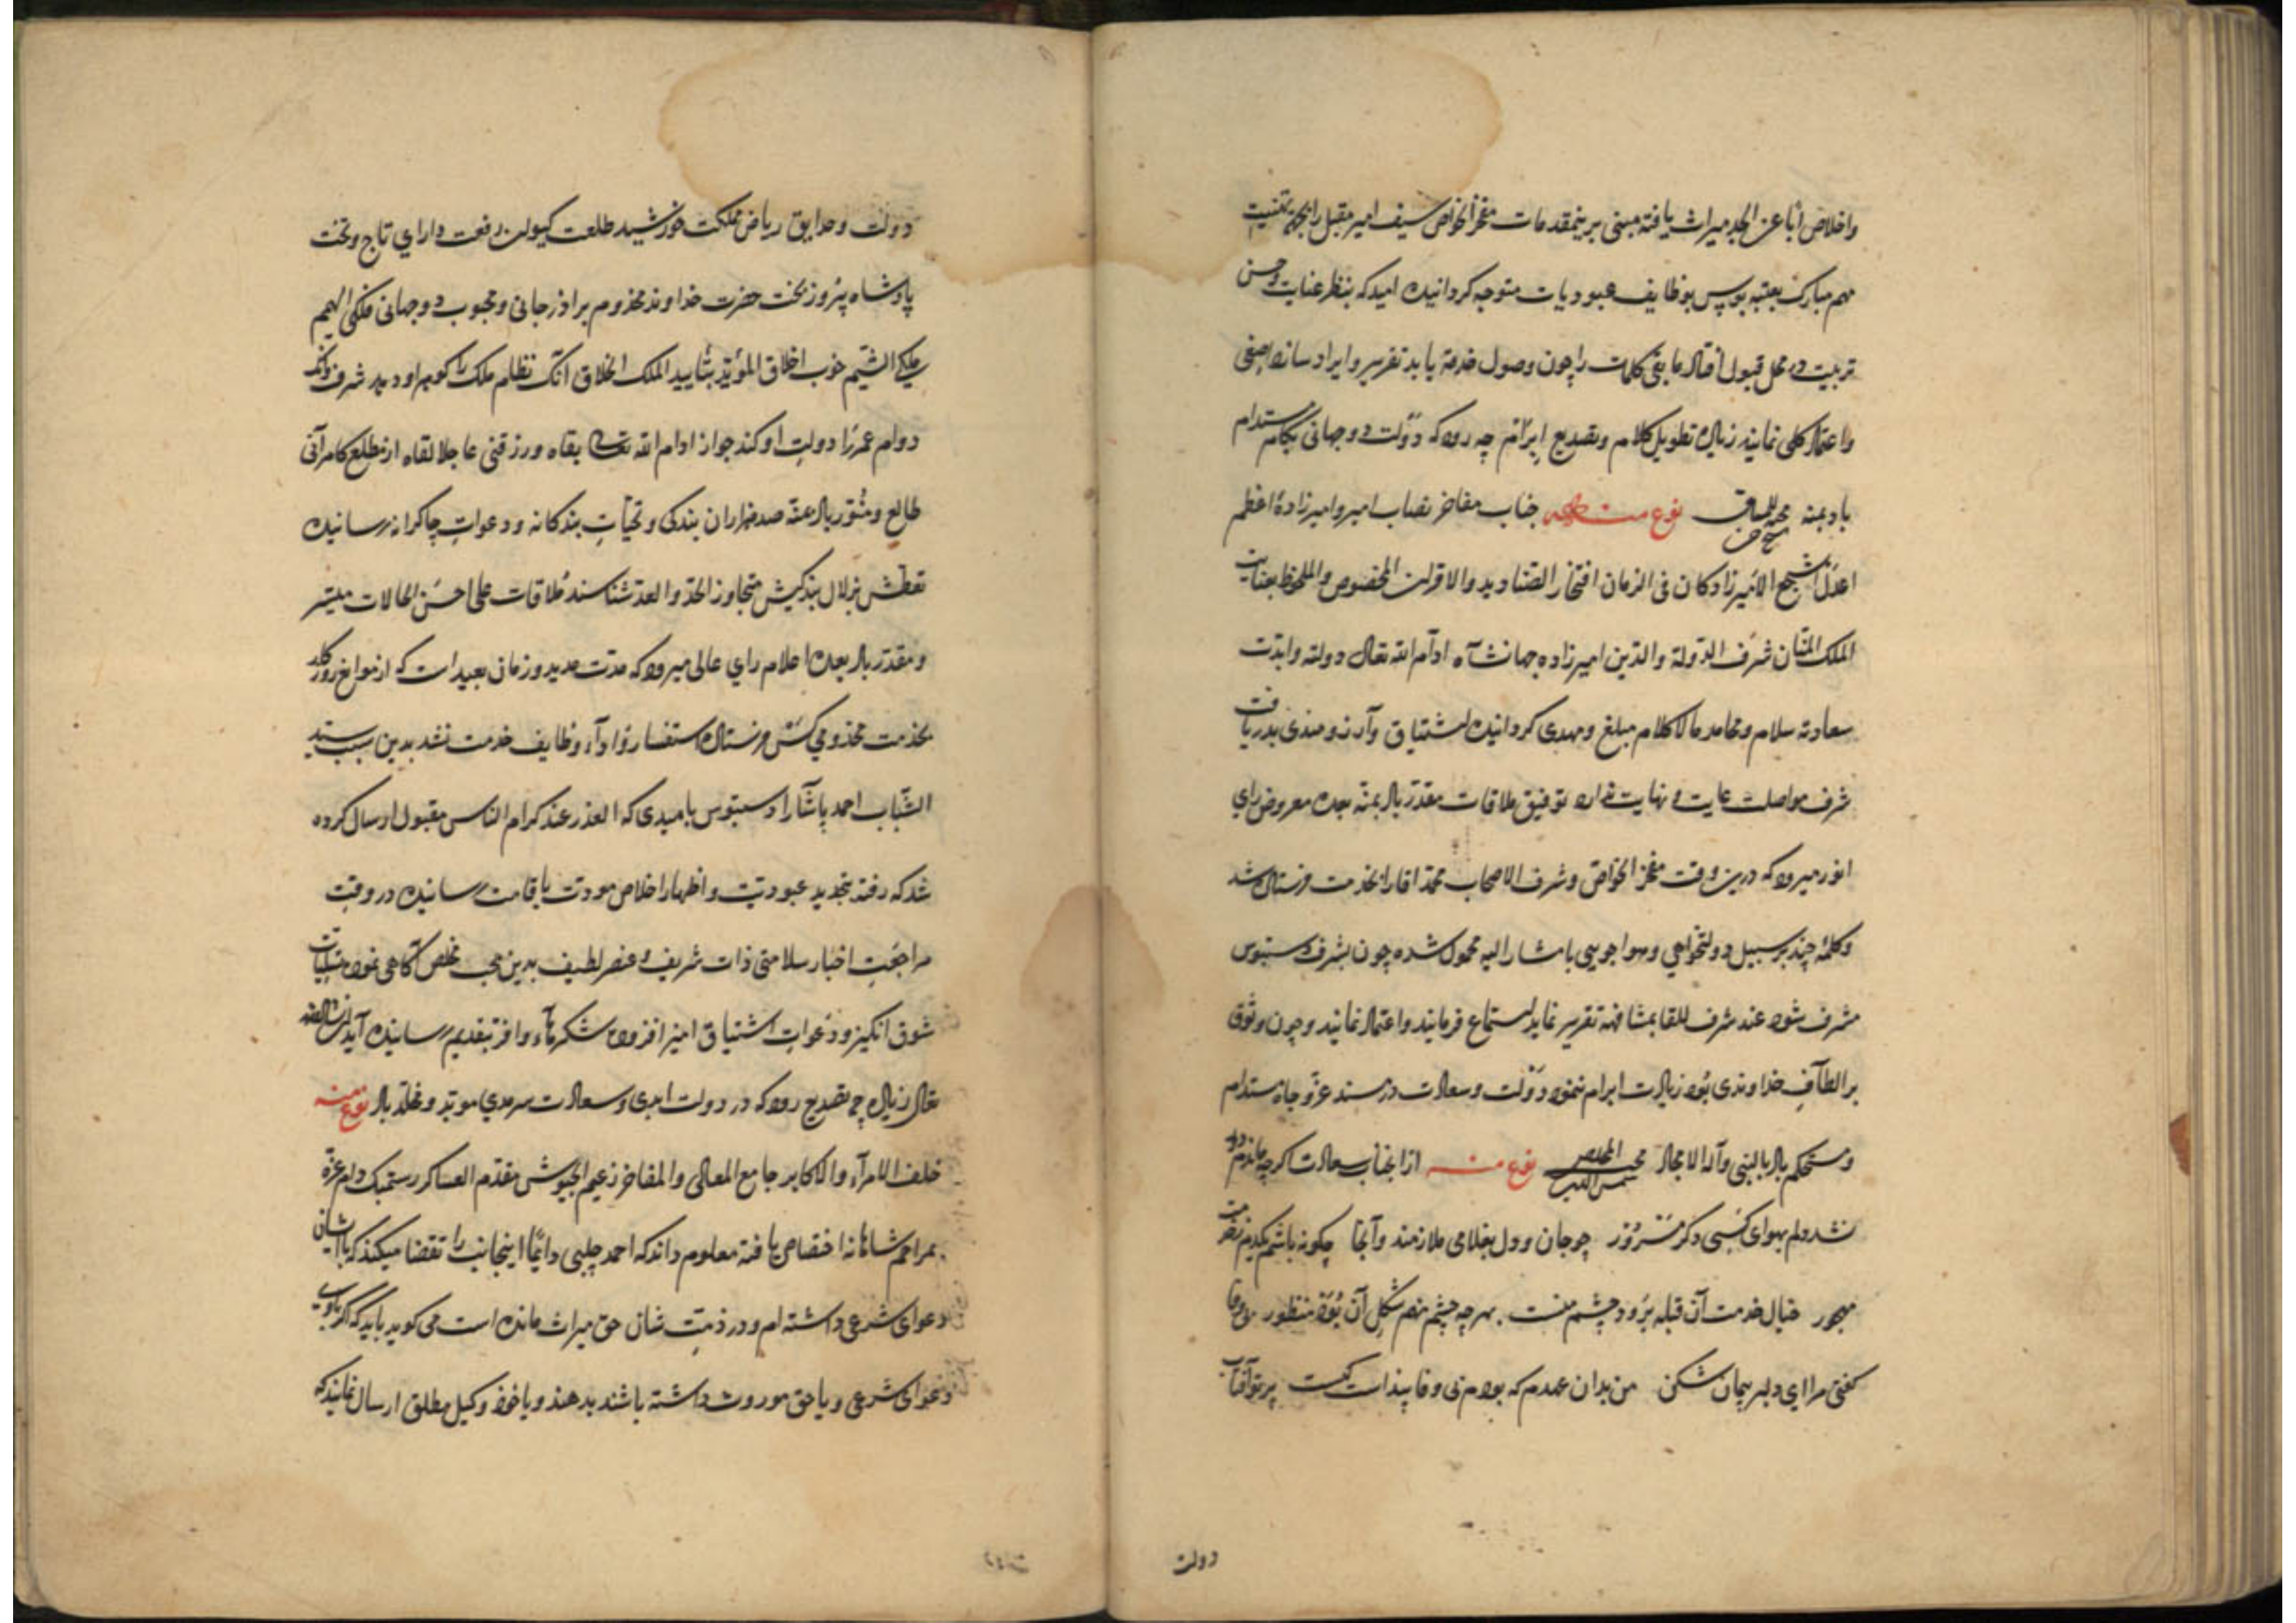 واخلاص اباً عن الجد میراث یافته مبنی برین مقدمات مفخر الخواص سیف امیر مقبل را بجهة تهنیت
مهم مبارک بعتبه بوس بوظایف عبودیات متوجه کردانیده امیدکه بنظر عنایت وحسن
تربیت در محل قبول افتاد مابقی کلمات را چون وصول خدمة یابد تقریر وایراد سازد اصغی
واعتماد کلی نمایند زیاده تطویل کلام وتصدیع ابرام چه رود که دولت دوجهانی بکام مستدام
باد بمنه نوع منه جناب مفاخر نصاب امیر وامیرزادهٔ اعظم
اعدل اشجع الامیرزادکان فی الزمان افتخار الصنادید والاقران المخصوص والملحوظ بعنایت
الملک المنّان شرف الدولة والدین امیرزاده جهانشاه ادام الله تعالی دولته وابدت
سعادته سلام ومحامد مالاکلام مبلغ ومهدی کردانیده اشتیاق وآرزومندی بدریافت
شرف مواصلت غایت ونهایت ندارد توفیق ملاقات مقدّر باد بمنّه بعده معروض رای
انور میرود که درین وقت مفخر الخواص وشرف الاصحاب محمد اقا را بخدمت فرستاده شد
وکلمهٔ چند برسبیل دولتخواهی وهواجویی با مشار الیه محمول شده چون بشرف دستبوس
مشرف شود عند شرف اللقا بمشافهه تقریر نماید استماع فرمایند واعتماد نمایند وچون وثوق
بر الطاف خداوندی بُود زیادت ابرام ننمود دولت وسعادت در مسند عزّ وجاه مستدام
ومستحکم باد بالنبی وآله الامجاد المخلص نوع منه ازان جناب سعادت اکرچه ماندم دور
نشد دلم بهوای کسی دکر مسرور چو جان ودل بغلامی ملازمند وآنجا چکونه باشم یکدم زحضرتت
مهجور خیال خدمت آن قبله بُرد ودچشم منست بهرچه چشم نهم شکل آن بُوَد منظور
کفتی مرا ای دلبر پیمان شکن من بدان عهدم که بودم نی وفا پنداست کیست پرتو آفتاب
دولت
دولت وحدایق ریاض مملکت خورشید طلعت کیوان رفعت دارای تاج وتخت
پادشاه پیروز بخت حضرت خداوند مخدوم برادرجانی ومحبوب دوجهانی فلکی الهمم
ملکی الشیم خوب اخلاق المؤیّد بتأیید الملک الخلاق آنک نظام ملک را کوهر او دهد شرف وانک
دوام عمر را دولت او کند جواز ادام الله تعالی بقاه ورزقنی عاجلا لقاه از مطلع کامرانی
طالع ومنوّر باد عنه صدهزاران بندکی وتحیّات بندکانه ودعوات چاکرانه رسانیده
تعطش بزلال بندکیش متجاوز الحدّ والعدّ شناسند مُلاقات علی احسن الحالات میسّر
ومقدّر باد بعده اعلام رای عالی میرود که مدّت مدید وزمان بعیداست که از موانع روزکار
بخدمت مخدومی کس فرستاده استفسار واداء وظایف خدمت نشد بدین سبب سید
الشّباب احمد پاشا را دستبوس بامیدی که العذر عند کرام الناس مقبول ارسال کرده
شد که رفته تجدید عبودیّت واظهار اخلاص مودّت باقامت رسانیده در وقت
مراجعت اخبار سلامتی ذات شریف وعنصر لطیف بدین محب مخلص آکاهی نموده تسلیات
شوق انکیز ودعوات اشتیاق امیز افزوده شکرهاء وافر بتقدیم رسانیده آید ان شاءالله
تعالی زیاده چه تصدیع رود که در دولت ابدی وسعادت سرمدی موبّد ومخلّد باد نوع منه
خلف الامرآء والاکابر جامع المعالی والمفاخر زعیم الجیوش مقدّم العساکر رستم بک دام عزّه
بمراحم شاهانه اختصاص یافته معلوم داند که احمد چلبی دایما اینجانب را تقضا میکند که باایشان
دعوای شرعی داشته ام ودر ذمّت شان حق میراث مانده است می کوید باید که اکر باوی
دعوای شرعی ویا حق موروث داشته باشند بدهند ویا خود وکیل مطلق ارسال نمایند که